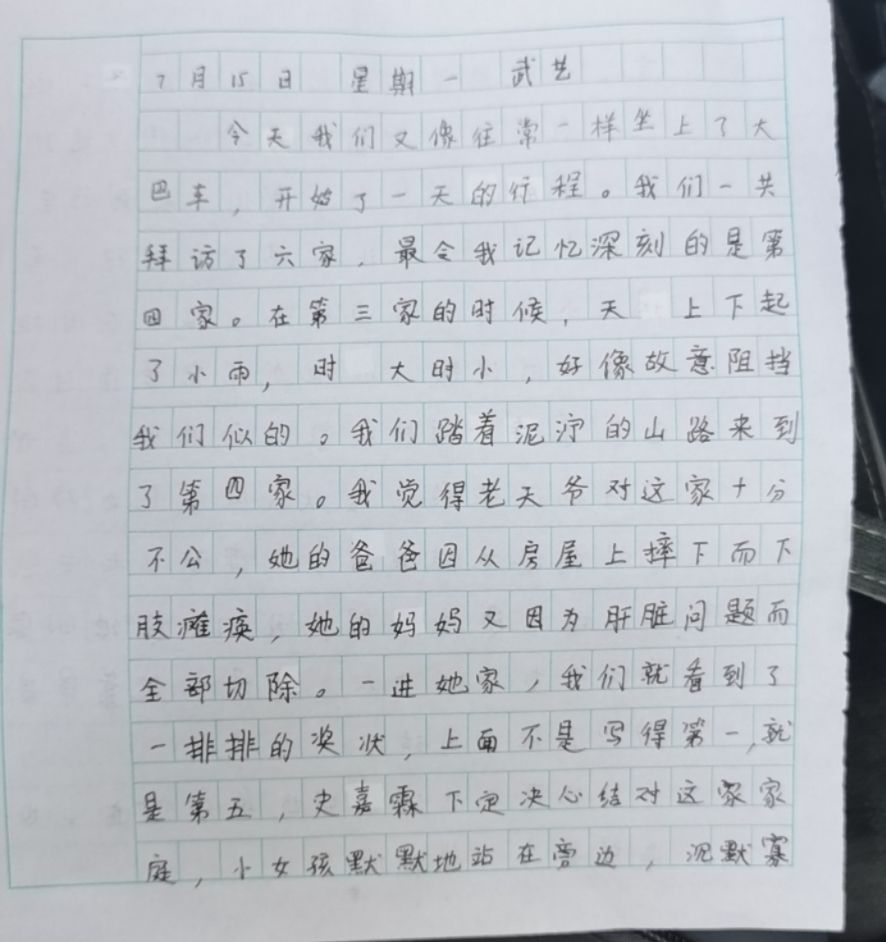 7月15日 星期一 武艺
今天我们又像往常一样坐上了大
巴车，开始了一天的行程。我们一共
拜访了六家，最令我记忆深刻的是第
四家。在第三家的时候，天 上下起
了小雨，时 大时小，好像故意阻挡
我们似的。我们踏着泥泞的山路来到
了第四家。我觉得老天爷对这家十分
不公，她的爸爸因从房屋上摔下而下
肢瘫痪，她的妈妈又因为肝脏问题而
全部切除。一进她家，我们就看到了
一排排的奖状，上面不是写得第一，就
是第五，史嘉霖下定决心结对这家家
庭，小女孩默默地站在旁边，沉默寡